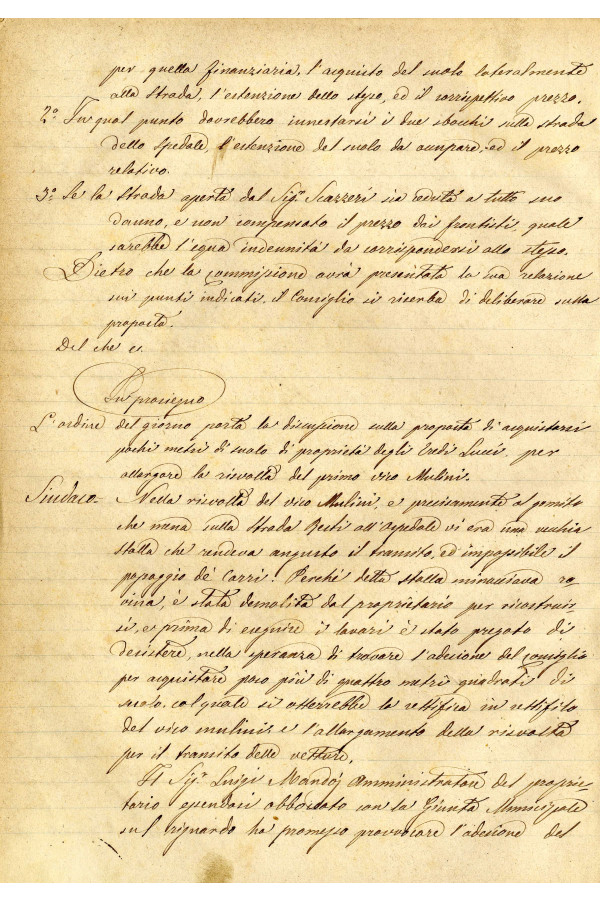 per quella finanziaria, l'acquisto del suolo lateralmente
alla strada, l'estenzione dello stesso, ed il corrispettivo prezzo.
2º In qual punto dovrebbero innestarsi i due sbocchi sulla strada
dello Spedale, l'estenzione del suolo da occupare, ed il prezzo
relativo.
3º Se la strada aperta dal Sigr Scazzeri sia ceduta a tutto suo
danno, e non compensato il prezzo dai frontisti, quale
sarebbe l'equa indennità da corrispondersi allo stesso.
Dietro che la commissione avrà presentata la sua relazione
sui punti indicati, il Consiglio si riserba di deliberare sulla
proposta.
Del che ec.
In prosieguo
L'ordine del giorno porta la discussione sulla proposta di acquistarsi
pochi metri di suolo di proprietà degli Eredi Lucci, per
allargare la risvolta del primo vico Mulini.
Sindaco - Nella risvolta del vico Mulini, e precisamente al gomito
che mena sulla Strada Resti all'Ospedale vi era una vecchia
stalla che rendeva angusto il transito, ed impossibile il
passaggio de' Carri. Perchè detta stalla minacciava ro-
vina, è stata demolita dal proprietario per ricostruir
si, e prima di eseguire i lavori è stato pregato di
desistere, nella speranza di trovare l'adesione del consiglio
per acquistare poco più di quattro metri quadrati di
suolo, col quale si otterrebbe la rettifica in rettifilo
del vico mulini, e l'allargamento della risvolta
per il transito delle vetture.
Il Sigr Luigi Mandoj Amministratore del proprie-
tario essendosi abboccato con la Giunta Municipale
sul riguardo ha promesso provvocare l'adesione del